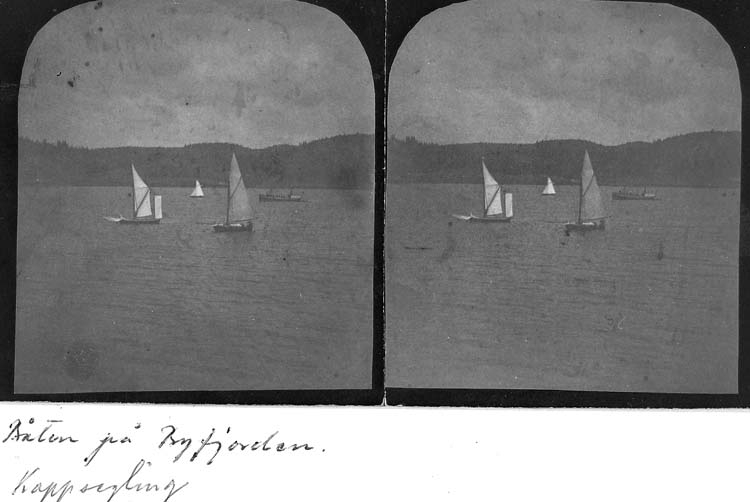 Båten på Byfjorden.
Kappsegling